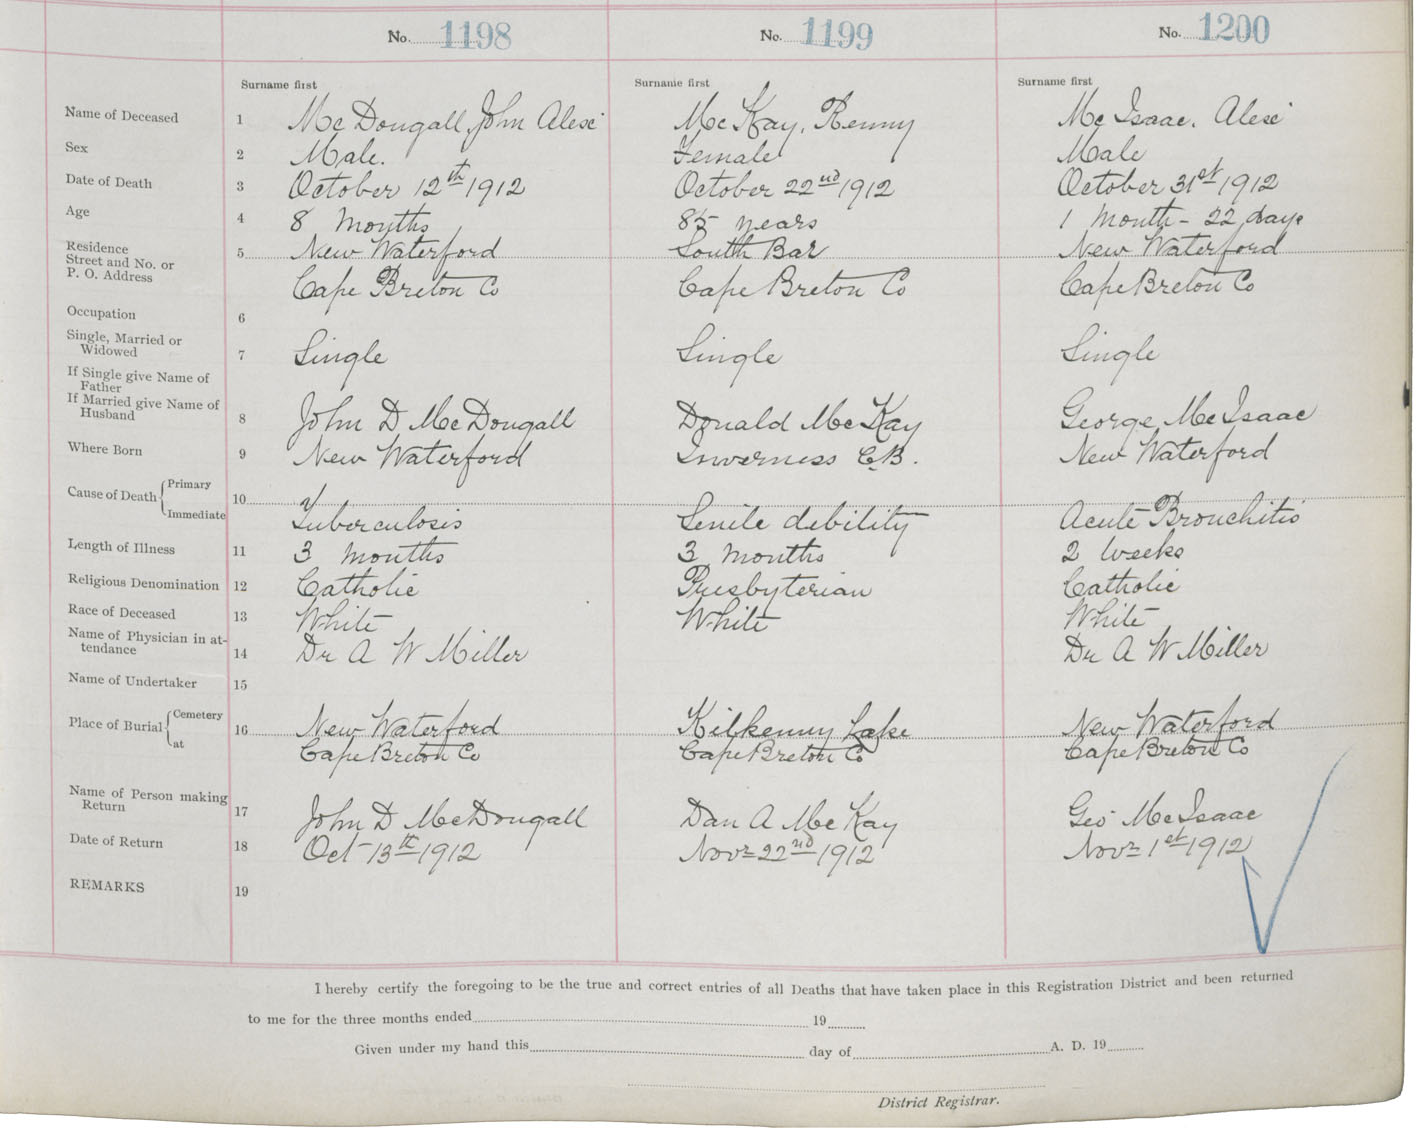 No. 1198 No. 1199 No. 1200
Surname first Surname first Surname first
Name of Deceased 1 McDougall, John Alexr McKay, Kenny McIsaac, Alexr
Sex 2 Male. Female Male
Date of Death 3 October 12th 1912 October 22nd 1912 October 31st 1912
Age 4 8 Months 85 years 1 Month - 22 days
Residence
Street and No. or 5 New Waterford South Bar New Waterford
P. O. Address Cape Breton Co Cape Breton Co Cape Breton Co
Occupation 6
Single, Married or
Widowed 7 Single Single Single
If Single give Name of
Father
If Married give Name of
Husband 8 John D McDougall Donald McKay George McIsaac
Where Born 9 New Waterford Inverness C.B. New Waterford
Cause of Death Primary 10
Immediate Tuberculosis Senile debility Acute Bronchitis
Length of Illness 11 3 months 3 months 2 weeks
Religious Denomination 12 Catholic Presbyterian Catholic
Race of Deceased 13 White White White
Name of Physician in at-
tendance 14 Dr A W Miller Dr A W Miller
Name of Undertaker 15
Place of Burial Cemetery 16 New Waterford Kilkenny Lake New Waterford
at Cape Breton Co Cape Breton Co Cape Breton Co
Name of Person making
Return 17 John D McDougall Dan A McKay Geo McIsaac
Date of Return 18 Oct 13th 1912 Novr 22nd 1912 Novr 1st 1912
REMARKS 19
I hereby certify the foregoing to be the true and correct entries of all Deaths that have taken place in this Registration District and been returned
to me for the three months ended 19
Given under my hand this day of A. D. 19
District Registrar.